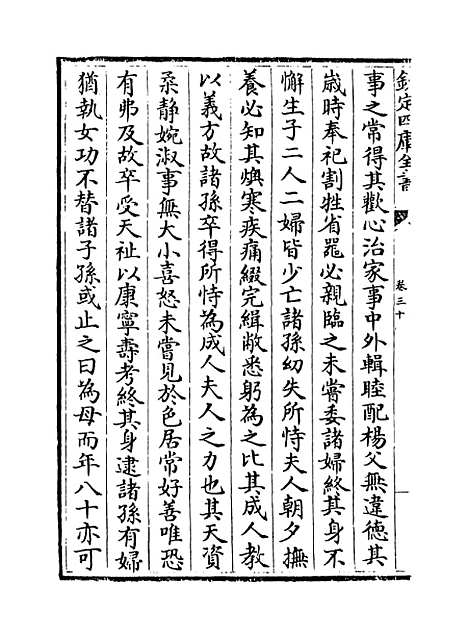 欽定四庫全書
卷三十
事之常得其歡心治家事中外輯睦配楊父無違德其
歲時奉祀割牲省罷必親臨之未嘗委諸婦終其身不
懈生子二人二婦皆少亡諸孫幼失所恃夫人朝夕撫
養必知其燠寒疾痛綴完緝敝悉躬為之比其成人教
以義方故諸孫卒得所恃為成人夫人之力也其天資
柔静婉淑事無大小喜怒未嘗見於色居常好善唯恐
有弗及故卒受天祉以康寧壽考終其身逮諸孫有婦
猶執女功不替諸子孫或止之曰為母而年八十亦可